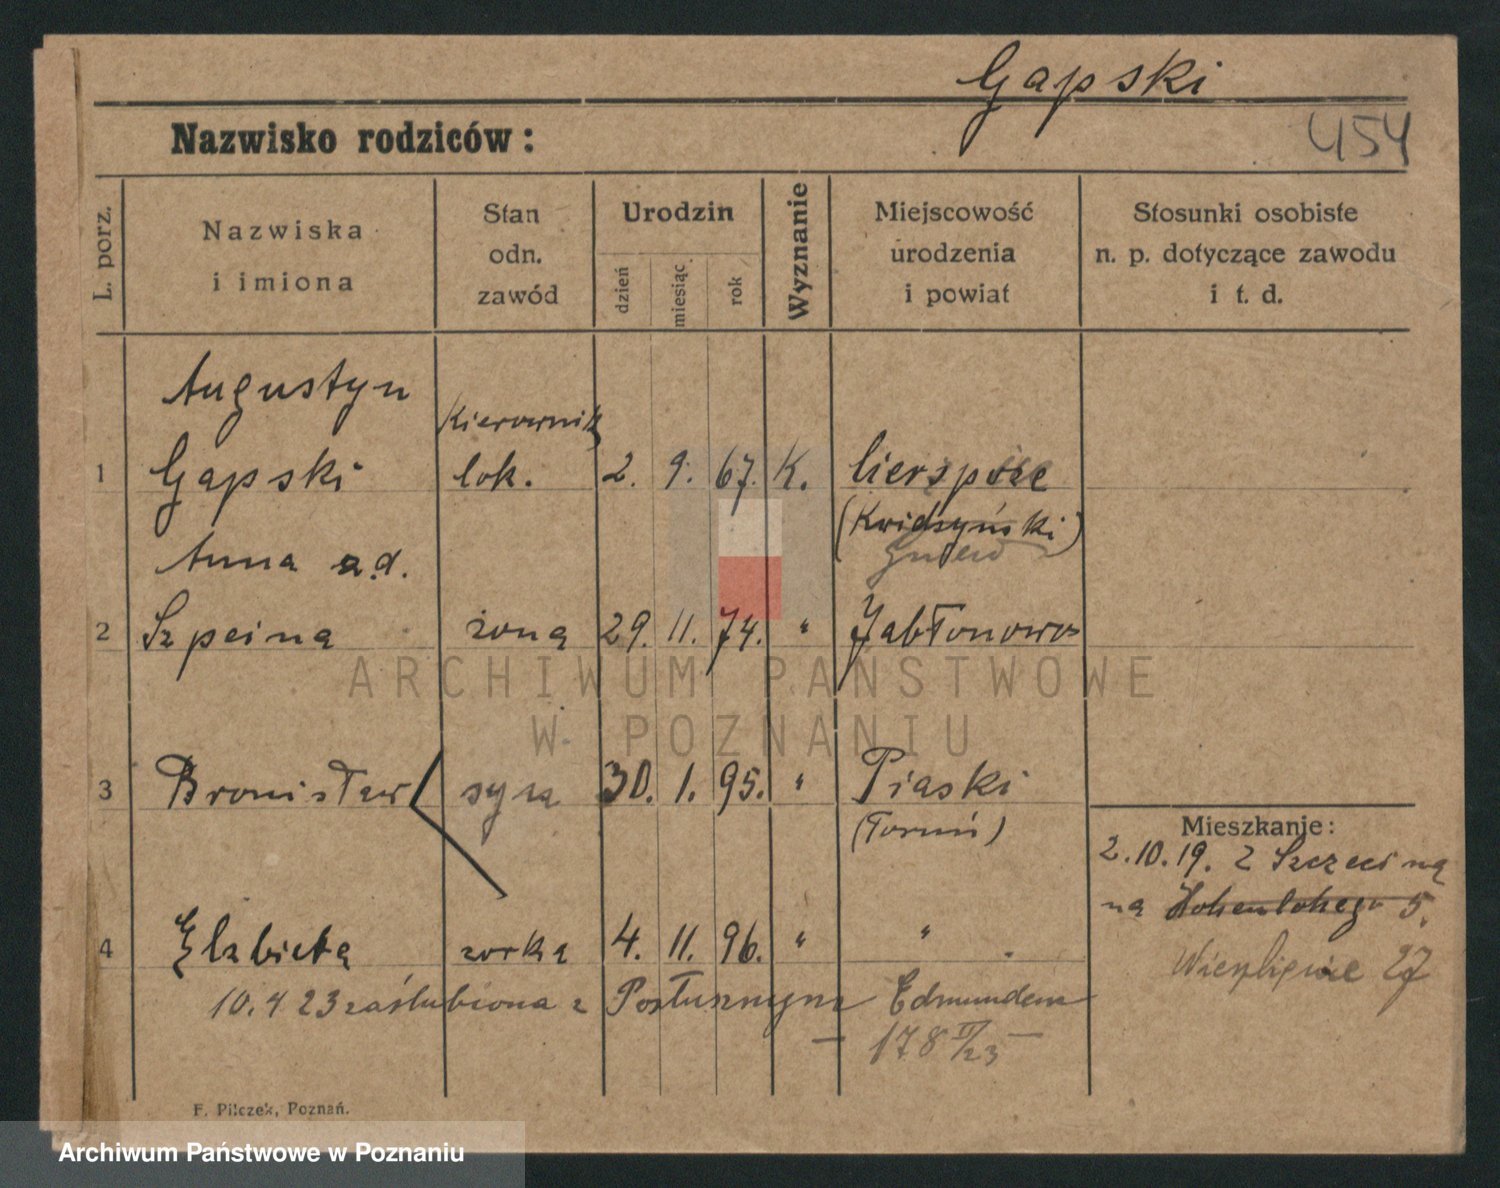 Gapski
454
Nazwisko rodziców:
L. porz.
Nazwiska
i imiona
Stan
odn.
zawód
Urodzin
dzień
miesiąc
rok
Wyznanie
Miejscowość
urodzenia
i powiat
Stosunki osobiste
n. p. dotyczące zawodu
i t. d.
Augustyn
Kierownik
1 Gapski lok. 2. 9. 67. K.
(Kwidzyński)
Gniew
Anna a.d.
2 Szpeina żona 29. 11. 74. " Jabłonowo
ARCHIWUM PAŃSTWOWE
W POZNANIU
3 Bronisław syn 30. 1. 95. " Piaski
(Toruń)
Mieszkanie:
2.10.19. z Szczecina
na Hohenlohego 5.
4 Elzbieta corka 4. 11. 96. " "
27
10.4 23 zaślubiona z Posłusznym Edmundem
— 178 II/23 —
F. Pilczek, Poznań.
Archiwum Państwowe w Poznaniu